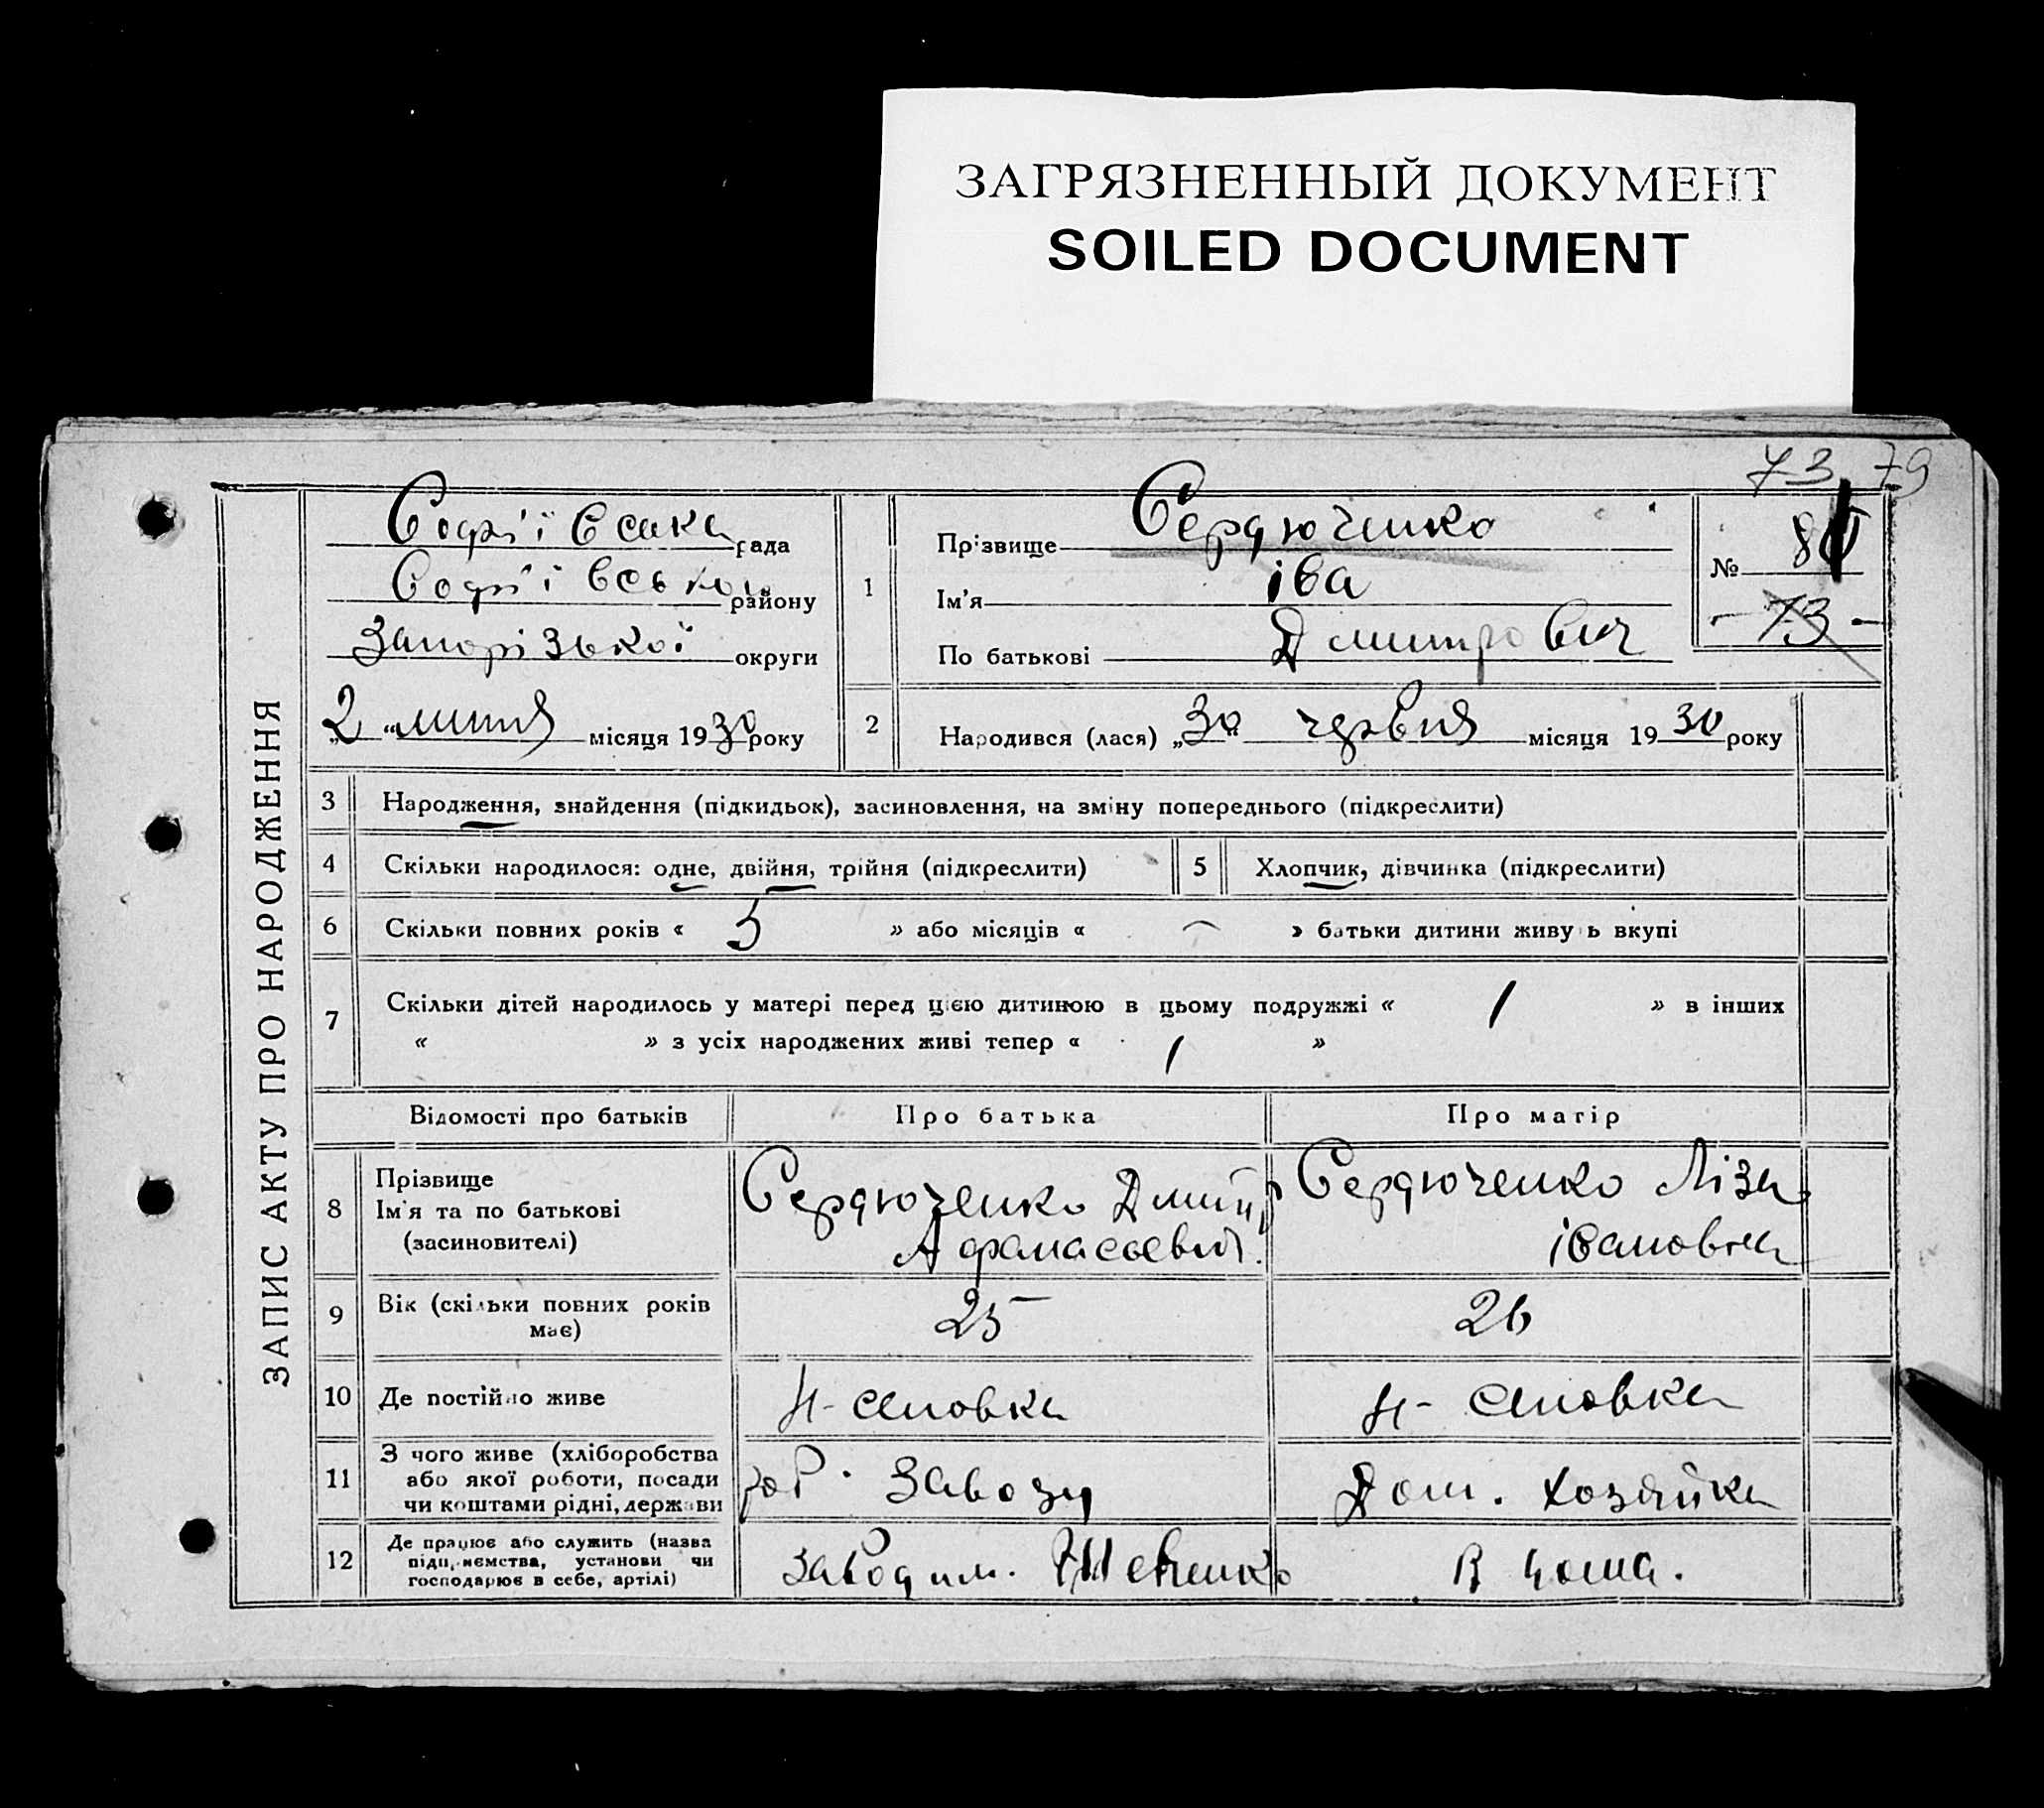 ЗАГРЯЗНЕННЫЙ ДОКУМЕНТ
SOILED DOCUMENT
73 79
ЗАПИС АКТУ ПРО НАРОДЖЕННЯ
Софіївсака рада
Софіївської району
Запорізької округи
„2“ липня місяця 1930 року
1
Прізвище Сердюченко
Ім'я іва
По батькові Дмитрович
№ 8
- 73 -
2 Народився (лася) „30“ червня місяця 1930 року
3 Народження, знайдення (підкидьок), засиновлення, на зміну попереднього (підкреслити)
4 Скільки народилося: одне, двійня, трійня (підкреслити) 5 Хлопчик, дівчинка (підкреслити)
6 Скільки повних років « 5 » або місяців « — » батьки дитини живуть вкупі
7 Скільки дітей народилось у матері перед цією дитиною в цьому подружжі « 1 » в інших
« » з усіх народжених живі тепер « 1 »
Відомості про батьків Про батька Про матір
8 Прізвище
Ім'я та по батькові
(засиновителі)
Сердюченко Дмитр
Афанасьевич.
Сердюченко Ліза
івановна
9 Вік (скільки повних років
має)
25 26
10 Де постійно живе Н-сановка Н-сановка
11 З чого живе (хліборобства
або якої роботи, посади
чи коштами рідні, держави
роб. Заводу Дом. хозяйка
12 Де працює або служить (назва
підприємства, установи чи
господарює в себе, артілі)
Завод им. Шевченко В дома.